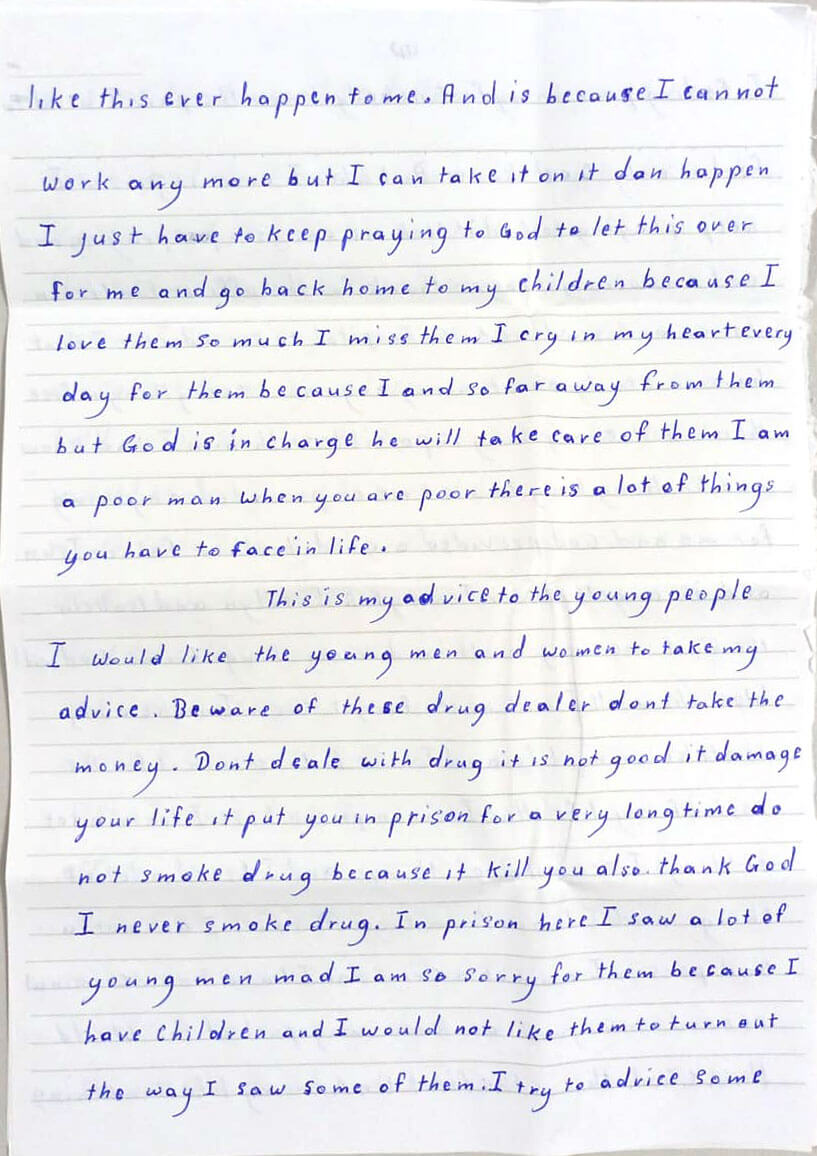 like this ever happen to me. And is because I cannot
work any more but I can take it on it dan happen
I just have to keep praying to God to let this over
for me and go back home to my children because I
love them so much I miss them I cry in my heart every
day for them because I and so far away from them
but God is in charge he will take care of them I am
a poor man when you are poor there is a lot of things
you have to face in life.
This is my advice to the young people
I would like the young men and women to take my
advice. Beware of these drug dealer dont take the
money. Dont deale with drug it is not good it damage
your life it put you in prison for a very long time do
not smoke drug because it kill you also. thank God
I never smoke drug. In prison here I saw a lot of
young men mad I am so sorry for them because I
have children and I would not like them to turn out
the way I saw some of them. I try to advice some